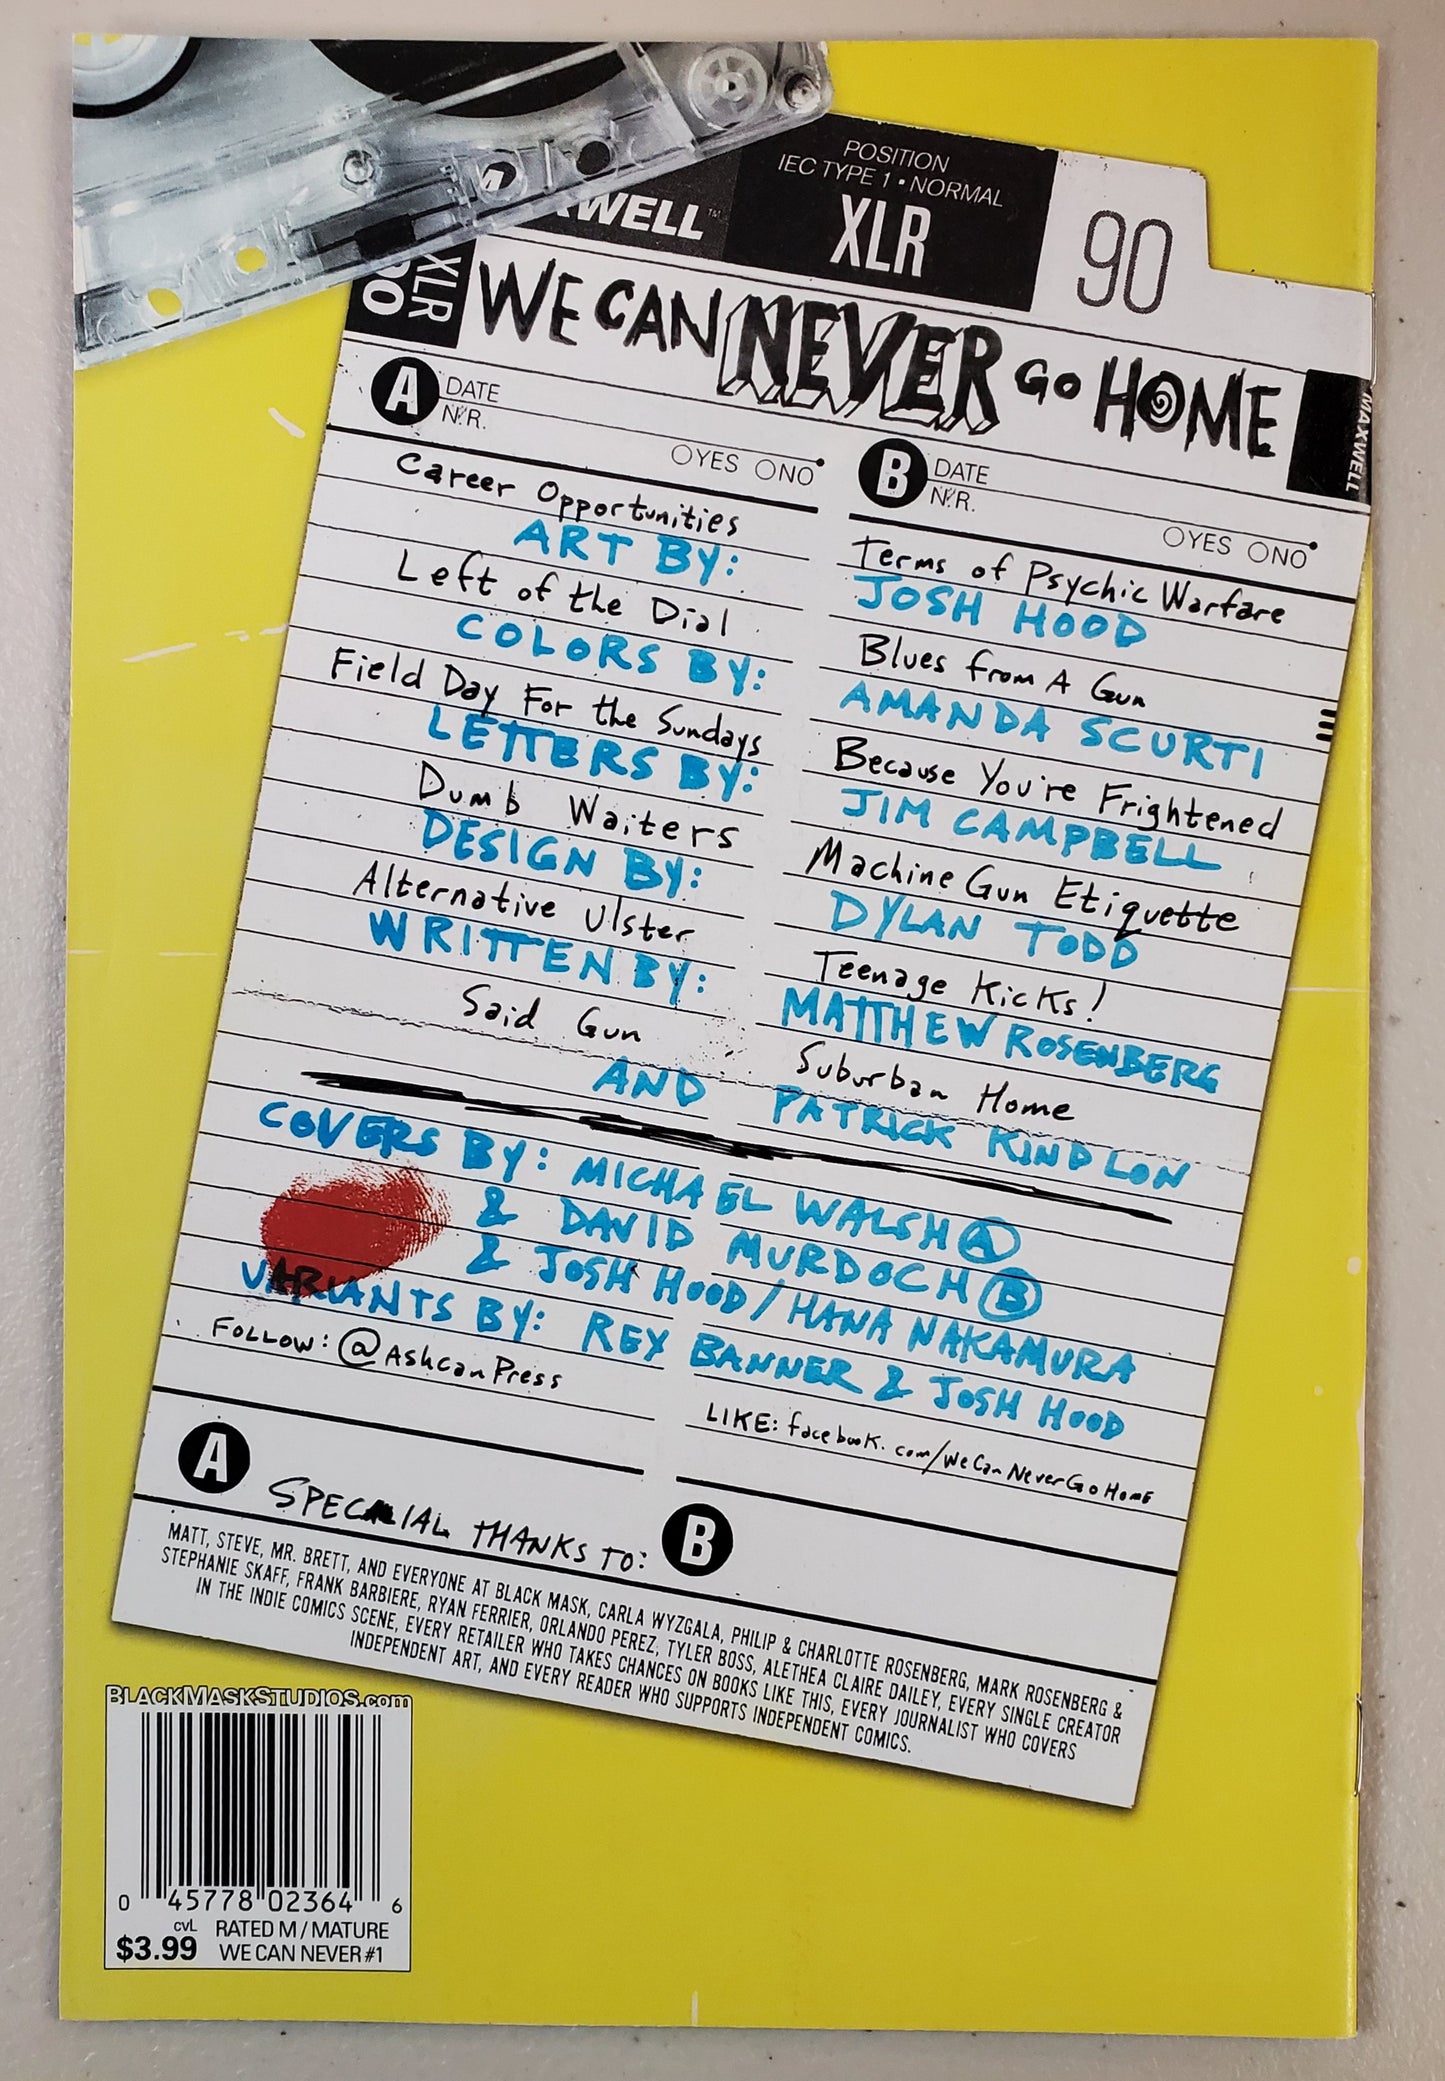 POSITION
IEC TYPE 1 • NORMAL
XLR
90
WELL™
XLR
WE CAN NEVER GO HOME
MAXWELL
A DATE
N.R.
OYES ONO
B DATE
N.R.
OYES ONO
Career Opportunities
ART BY:
Left of the Dial
COLORS BY:
Field Day For the Sundays
LETTERS BY:
Dumb Waiters
DESIGN BY:
Alternative Ulster
WRITTEN BY:
Said Gun
AND
Terms of Psychic Warfare
JOSH HOOD
Blues from A Gun
AMANDA SCURTI
Because You're Frightened
JIM CAMPBELL
Machine Gun Etiquette
DYLAN TODD
Teenage Kicks!
MATTHEW ROSENBERG
Suburban Home
PATRICK KINDLON
COVERS BY: MICHAEL WALSH A
& DAVID MURDOCH B
& JOSH HOOD / HANA NAKAMURA
VARIANTS BY: REX BANNER & JOSH HOOD
FOLLOW: @AshcanPress
LIKE: facebook.com/WeCanNeverGoHome
A
SPECIAL THANKS TO:
B
MATT, STEVE, MR. BRETT, AND EVERYONE AT BLACK MASK, CARLA WYZGALA, PHILIP & CHARLOTTE ROSENBERG, MARK ROSENBERG &
STEPHANIE SKAFF, FRANK BARBIERE, RYAN FERRIER, ORLANDO PEREZ, TYLER BOSS, ALETHEA CLAIRE DAILEY, EVERY SINGLE CREATOR
IN THE INDIE COMICS SCENE, EVERY RETAILER WHO TAKES CHANCES ON BOOKS LIKE THIS, EVERY JOURNALIST WHO COVERS
INDEPENDENT ART, AND EVERY READER WHO SUPPORTS INDEPENDENT COMICS.
BLACKMASKSTUDIOS.com
0 45778 02364 6
cvL RATED M / MATURE
$3.99 WE CAN NEVER #1